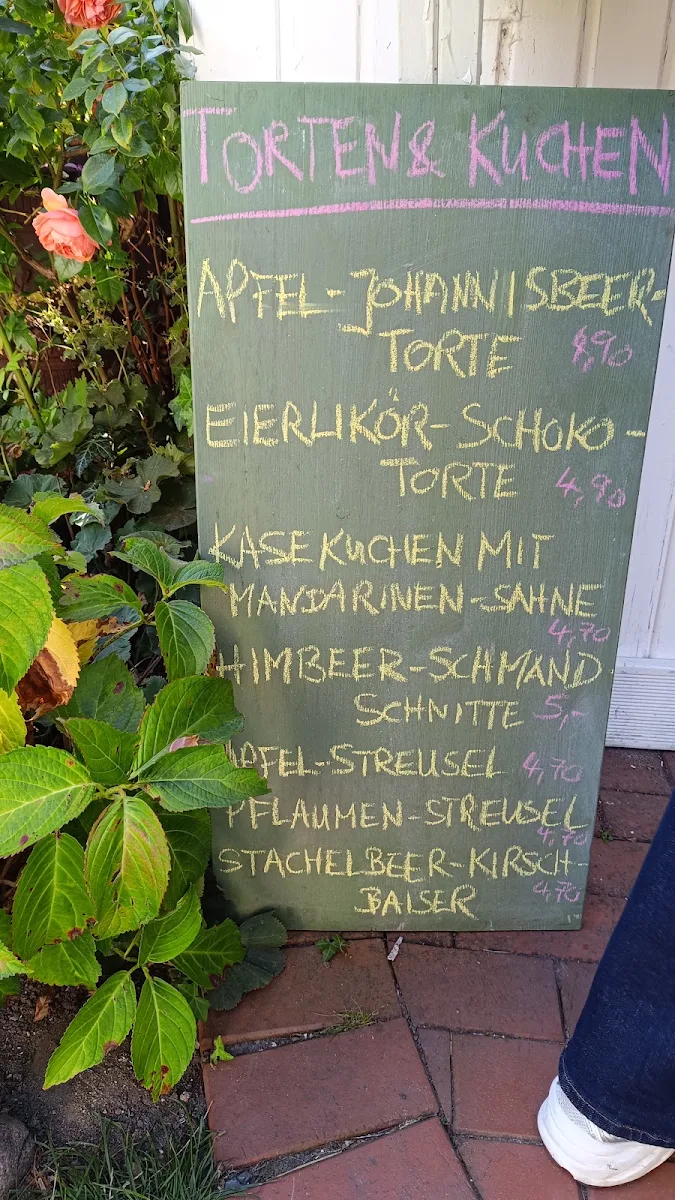 TORTEN & KUCHEN
APFEL-JOHANNISBEER-
TORTE 4,90
EIERLIKÖR-SCHOKO-
TORTE 4,90
KÄSEKUCHEN MIT
MANDARINEN-SAHNE
4,70
HIMBEER-SCHMAND
SCHNITTE 5,-
APFEL-STREUSEL 4,70
PFLAUMEN-STREUSEL
4,70
STACHELBEER-KIRSCH-
BAISER 4,70